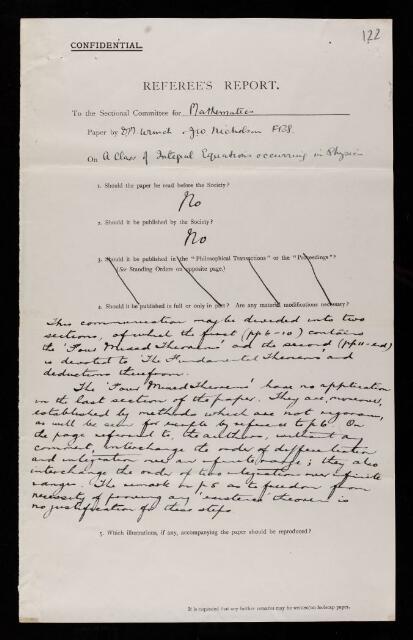 122
CONFIDENTIAL.
REFEREE'S REPORT.
To the Sectional Committee for Mathematics
Paper by D M Wrinch & J W Nicholson FRS.
On A Class of Integral Equations occurring in Physics
1. Should the paper be read before the Society?
No
2. Should it be published by the Society?
No
3. Should it be published in the "Philosophical Transactions" or the "Proceedings"?
(See Standing Orders on opposite page.)
4. Should it be published in full or only in part? Are any material modifications necessary?
This communication may be divided into two
sections, of which the first (pp 6-10) contains
the 'Four Mixed Theorems' and the second (pp 11-end)
is devoted to 'The Fundamental Theorems' and
deductions therefrom.
The 'Four Mixed Theorems' have no application
in the last section of the paper. They are, moreover,
established by methods which are not rigorous,
as will be seen for example by reference to p 6. On
the page referred to, the authors, without any
comment, interchange the order of differentiation
and integration over an infinite range; they also
interchange the order of two integrations over infinite
ranges. The remark on p 5 as to freedom from
necessity of proving any 'existence' theorem is
no justification for these steps
5. Which illustrations, if any, accompanying the paper should be reproduced?
It is requested that any further remarks may be written on foolscap paper.